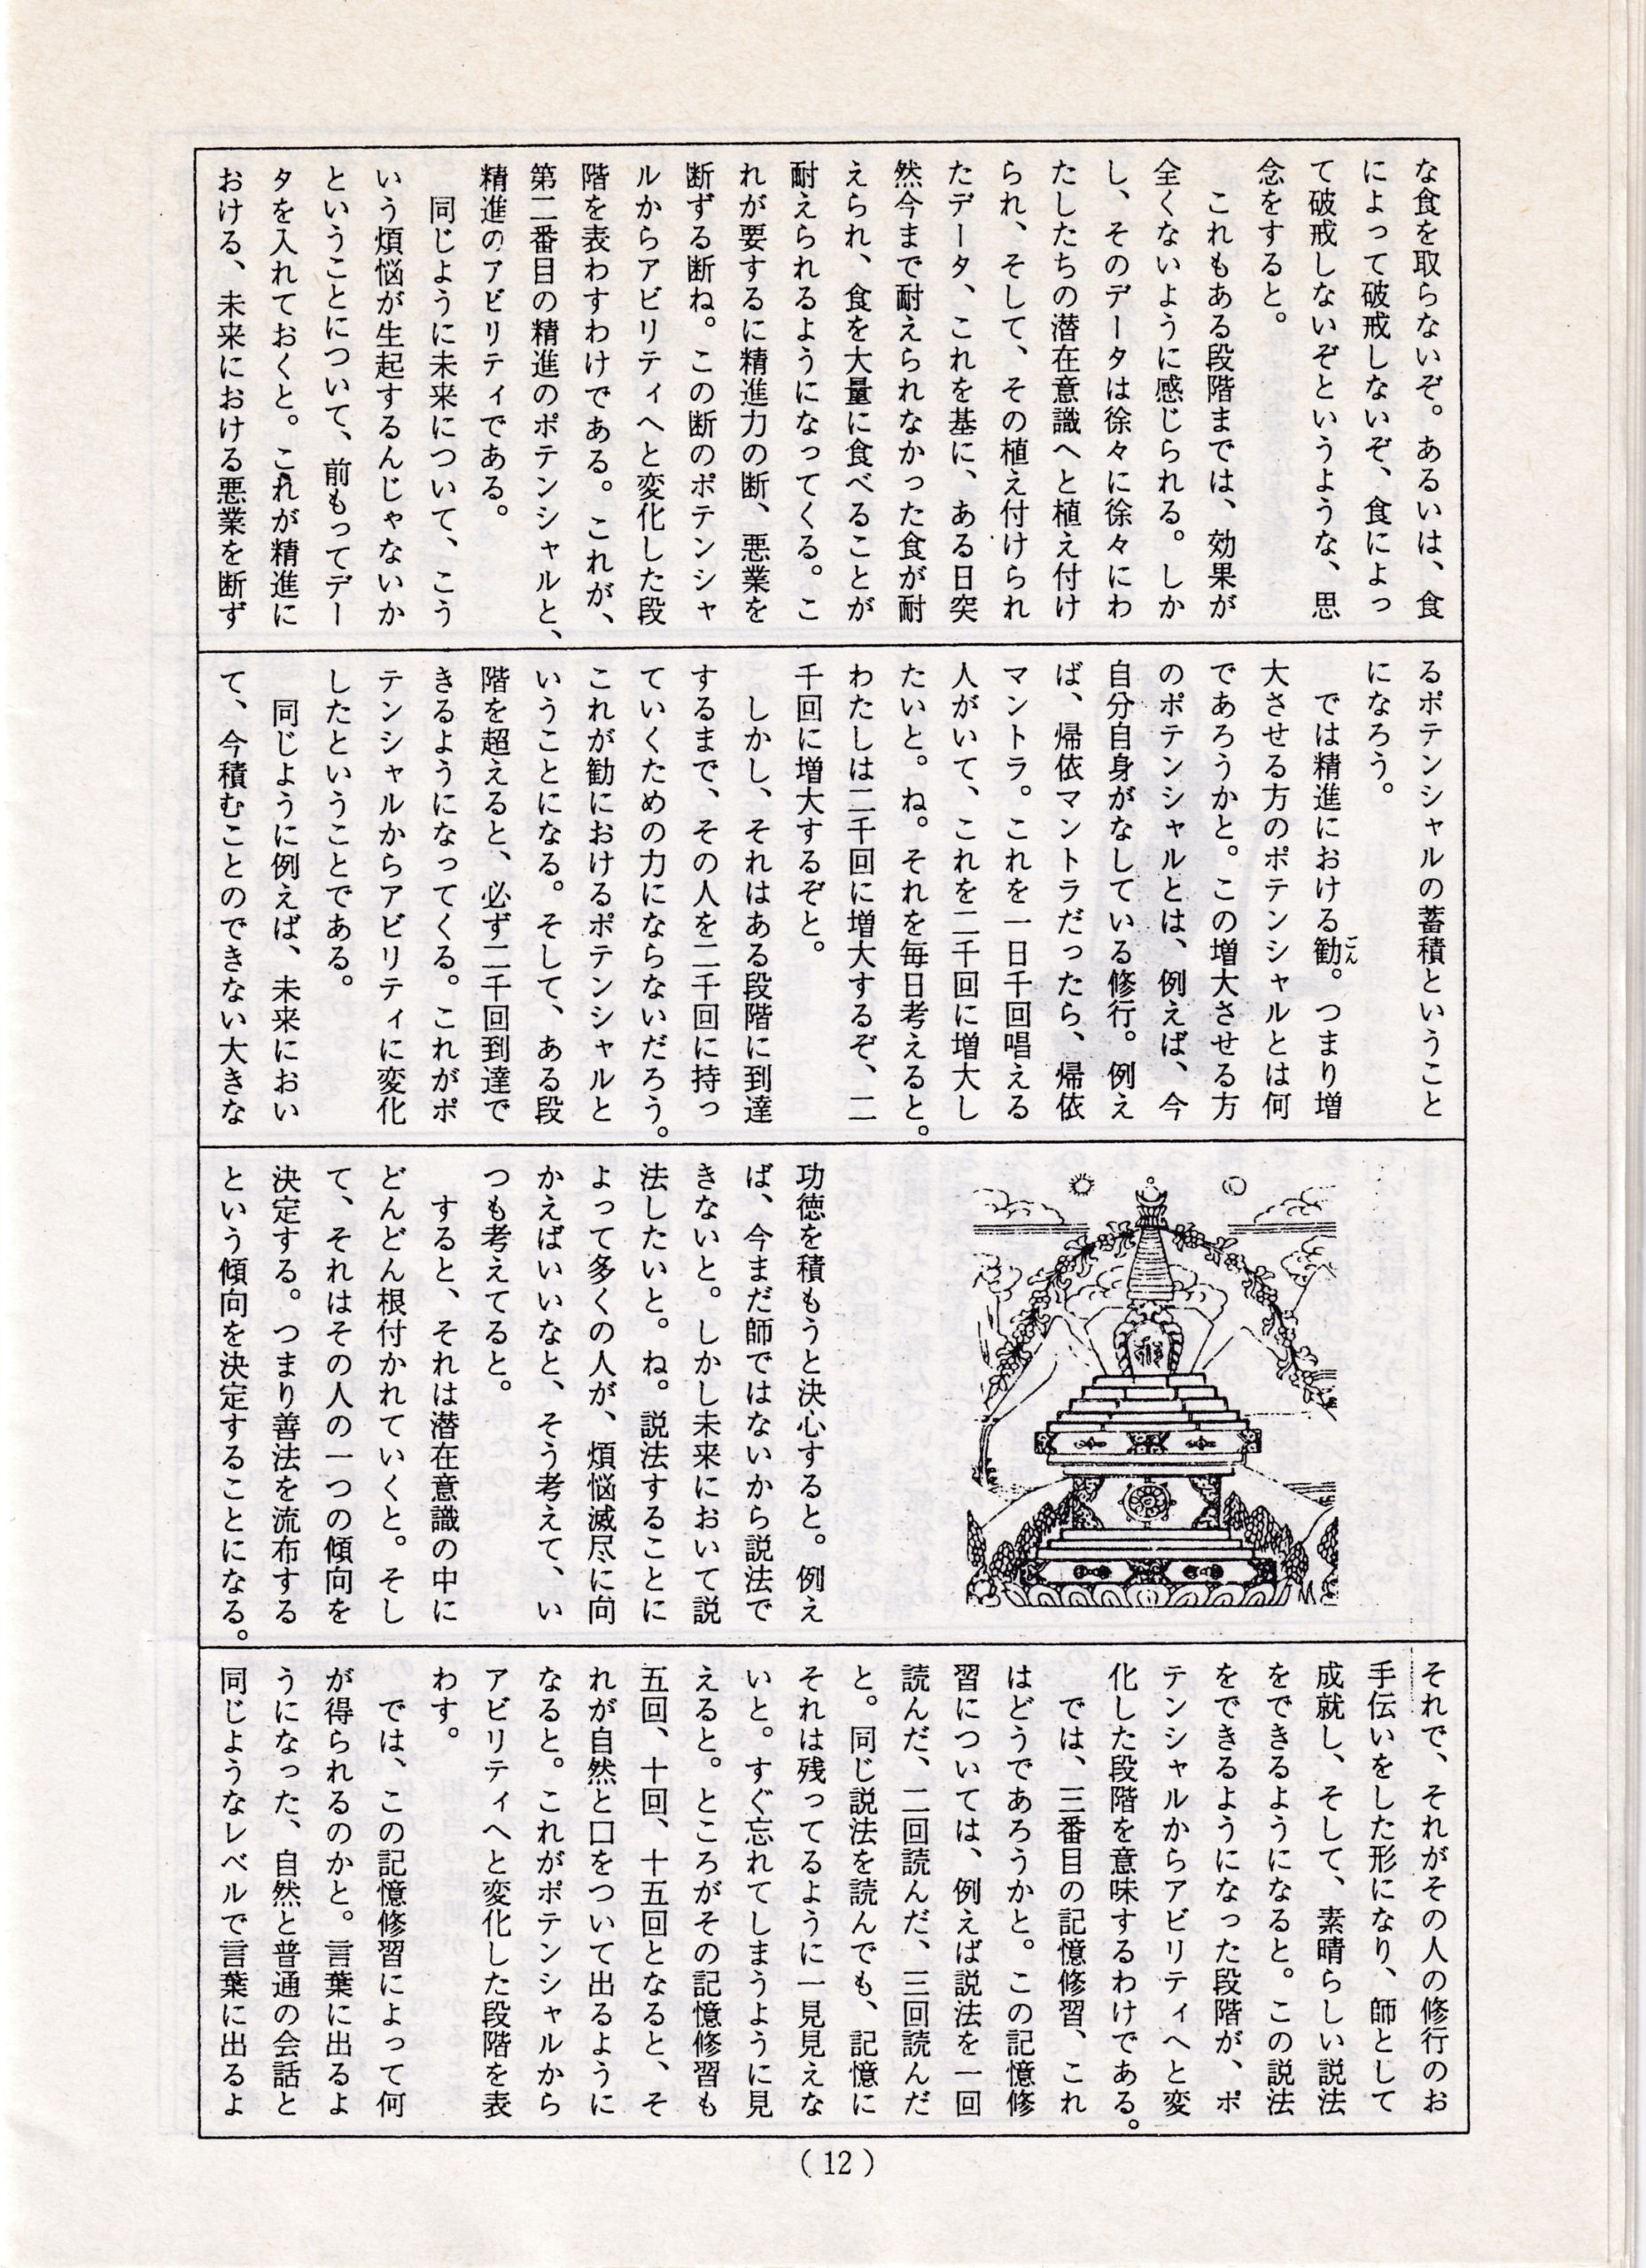 な食を取らないぞ。あるいは、食
によって破戒しないぞ、食によっ
て破戒しないぞというような、思
念をすると。
これもある段階までは、効果が
全くないように感じられる。しか
し、そのデータは徐々に徐々にわ
たしたちの潜在意識へと植え付け
られ、そして、その植え付けられ
たデータ、これを基に、ある日突
然今まで耐えられなかった食が耐
えられ、食を大量に食べることが
耐えられるようになってくる。こ
れが要するに精進力の断、悪業を
断ずる断ね。この断のポテンシャ
ルからアビリティへと変化した段
階を表わすわけである。これが、
第二番目の精進のポテンシャルと、
精進のアビリティである。
同じように未来について、こう
いう煩悩が生起するんじゃないか
ということについて、前もってデー
タを入れておくと。これが精進に
おける、未来における悪業を断ず
るポテンシャルの蓄積ということ
になろう。
では精進における勧ごん。つまり増
大させる方のポテンシャルとは何
であろうかと。この増大させる方
のポテンシャルとは、例えば、今
自分自身がなしている修行。例え
ば、帰依マントラだったら、帰依
マントラ。これを一日千回唱える
人がいて、これを二千回に増大し
たいと。ね。それを毎日考えると。
わたしは二千回に増大するぞ、二
千回に増大するぞと。
しかし、それはある段階に到達
するまで、その人を二千回に持っ
ていくための力にならないだろう。
これが勧におけるポテンシャルと
いうことになる。そして、ある段
階を超えると、必ず二千回到達で
きるようになってくる。これがポ
テンシャルからアビリティに変化
したということである。
同じように例えば、未来におい
て、今積むことのできない大きな
功徳を積もうと決心すると。例え
ば、今まだ師ではないから説法で
きないと。しかし未来において説
法したいと。ね。説法することに
よって多くの人が、煩悩滅尽に向
かえばいいなと、そう考えて、い
つも考えてると。
すると、それは潜在意識の中に
どんどん根付かれていくと。そし
て、それはその人の一つの傾向を
決定する。つまり善法を流布する
という傾向を決定することになる。
それで、それがその人の修行のお
手伝いをした形になり、師として
成就し、そして、素晴らしい説法
をできるようになると。この説法
をできるようになった段階が、ポ
テンシャルからアビリティへと変
化した段階を意味するわけである。
では、三番目の記憶修習、これ
はどうであろうかと。この記憶修
習については、例えば説法を一回
読んだ、二回読んだ、三回読んだ
と。同じ説法を読んでも、記憶に
それは残ってるように一見見えな
いと。すぐ忘れてしまうように見
えると。ところがその記憶修習も
五回、十回、十五回となると、そ
れが自然と口をついて出るように
なると。これがポテンシャルから
アビリティへと変化した段階を表
わす。
では、この記憶修習によって何
が得られるのかと。言葉に出るよ
うになった、自然と普通の会話と
同じようなレベルで言葉に出るよ
(12)